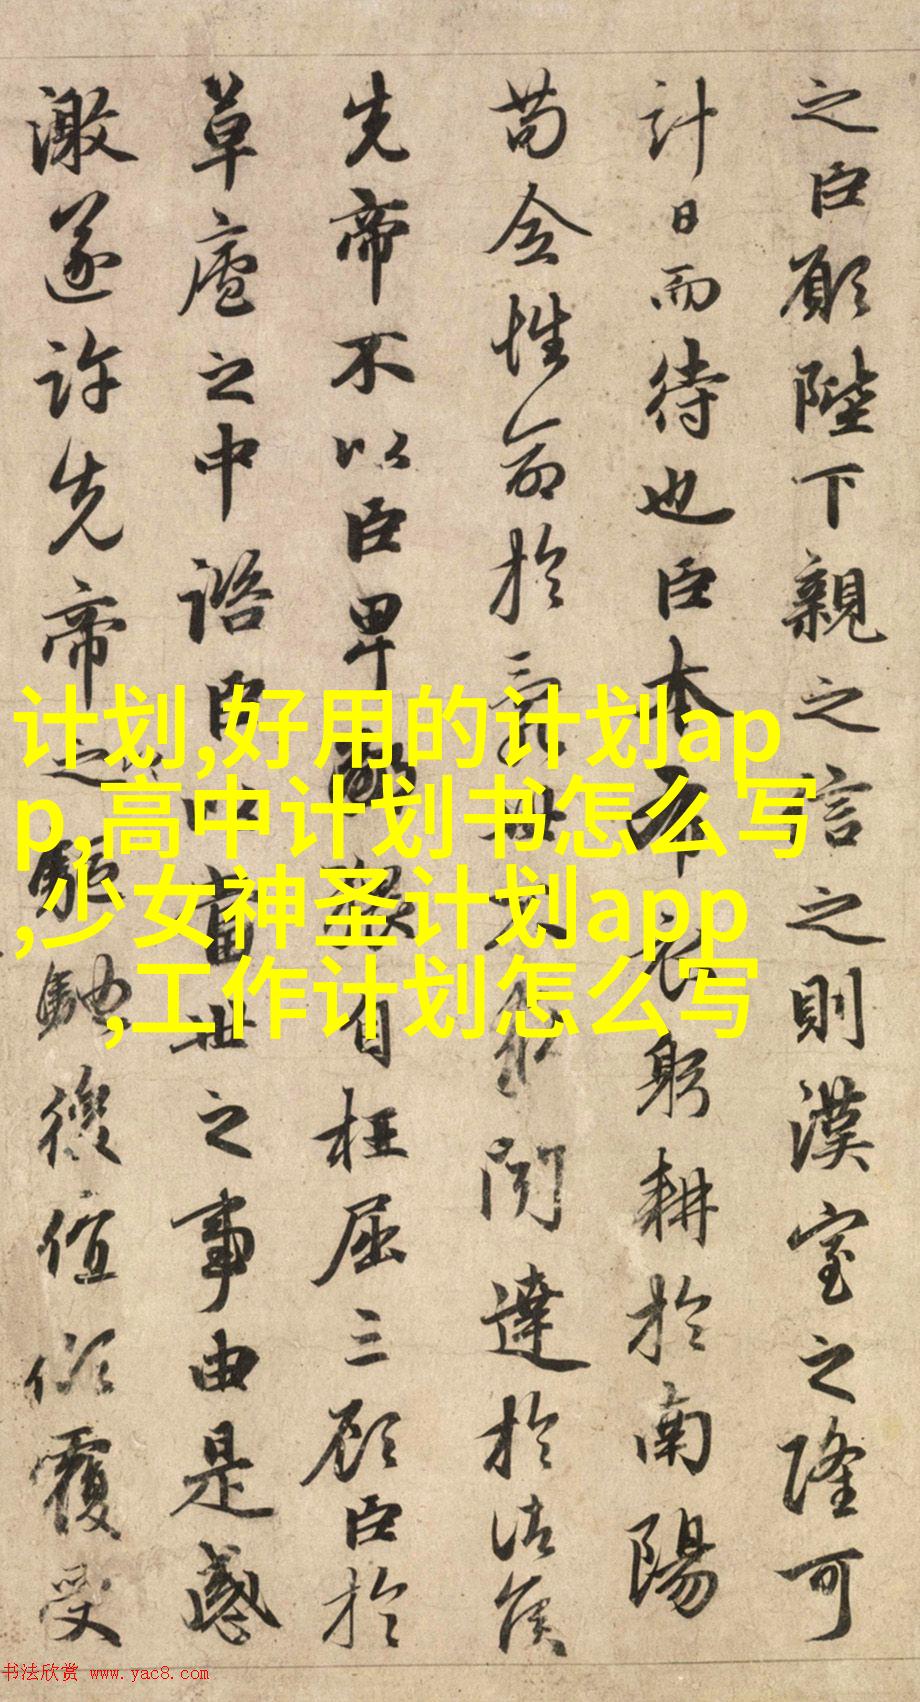 之臣願陛下親之言之則漢室之隆可
計日而待也臣本布衣躬耕於南陽
苟全性命於亂世不求聞達於諸侯
先帝不以臣卑鄙猥自枉屈三顧臣於
草廬之中諮臣以當世之事由是感
激遂許先帝之驅馳後值傾覆受
计划,好用的计划ap
p,高中计划书怎么写
,少女神圣计划app
,工作计划怎么写
书法欣赏 www.yac8.com